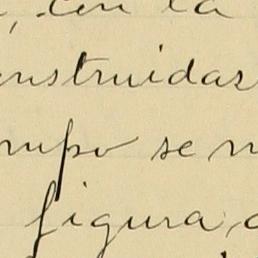 con la
nstruidas
rupo se n
figura,